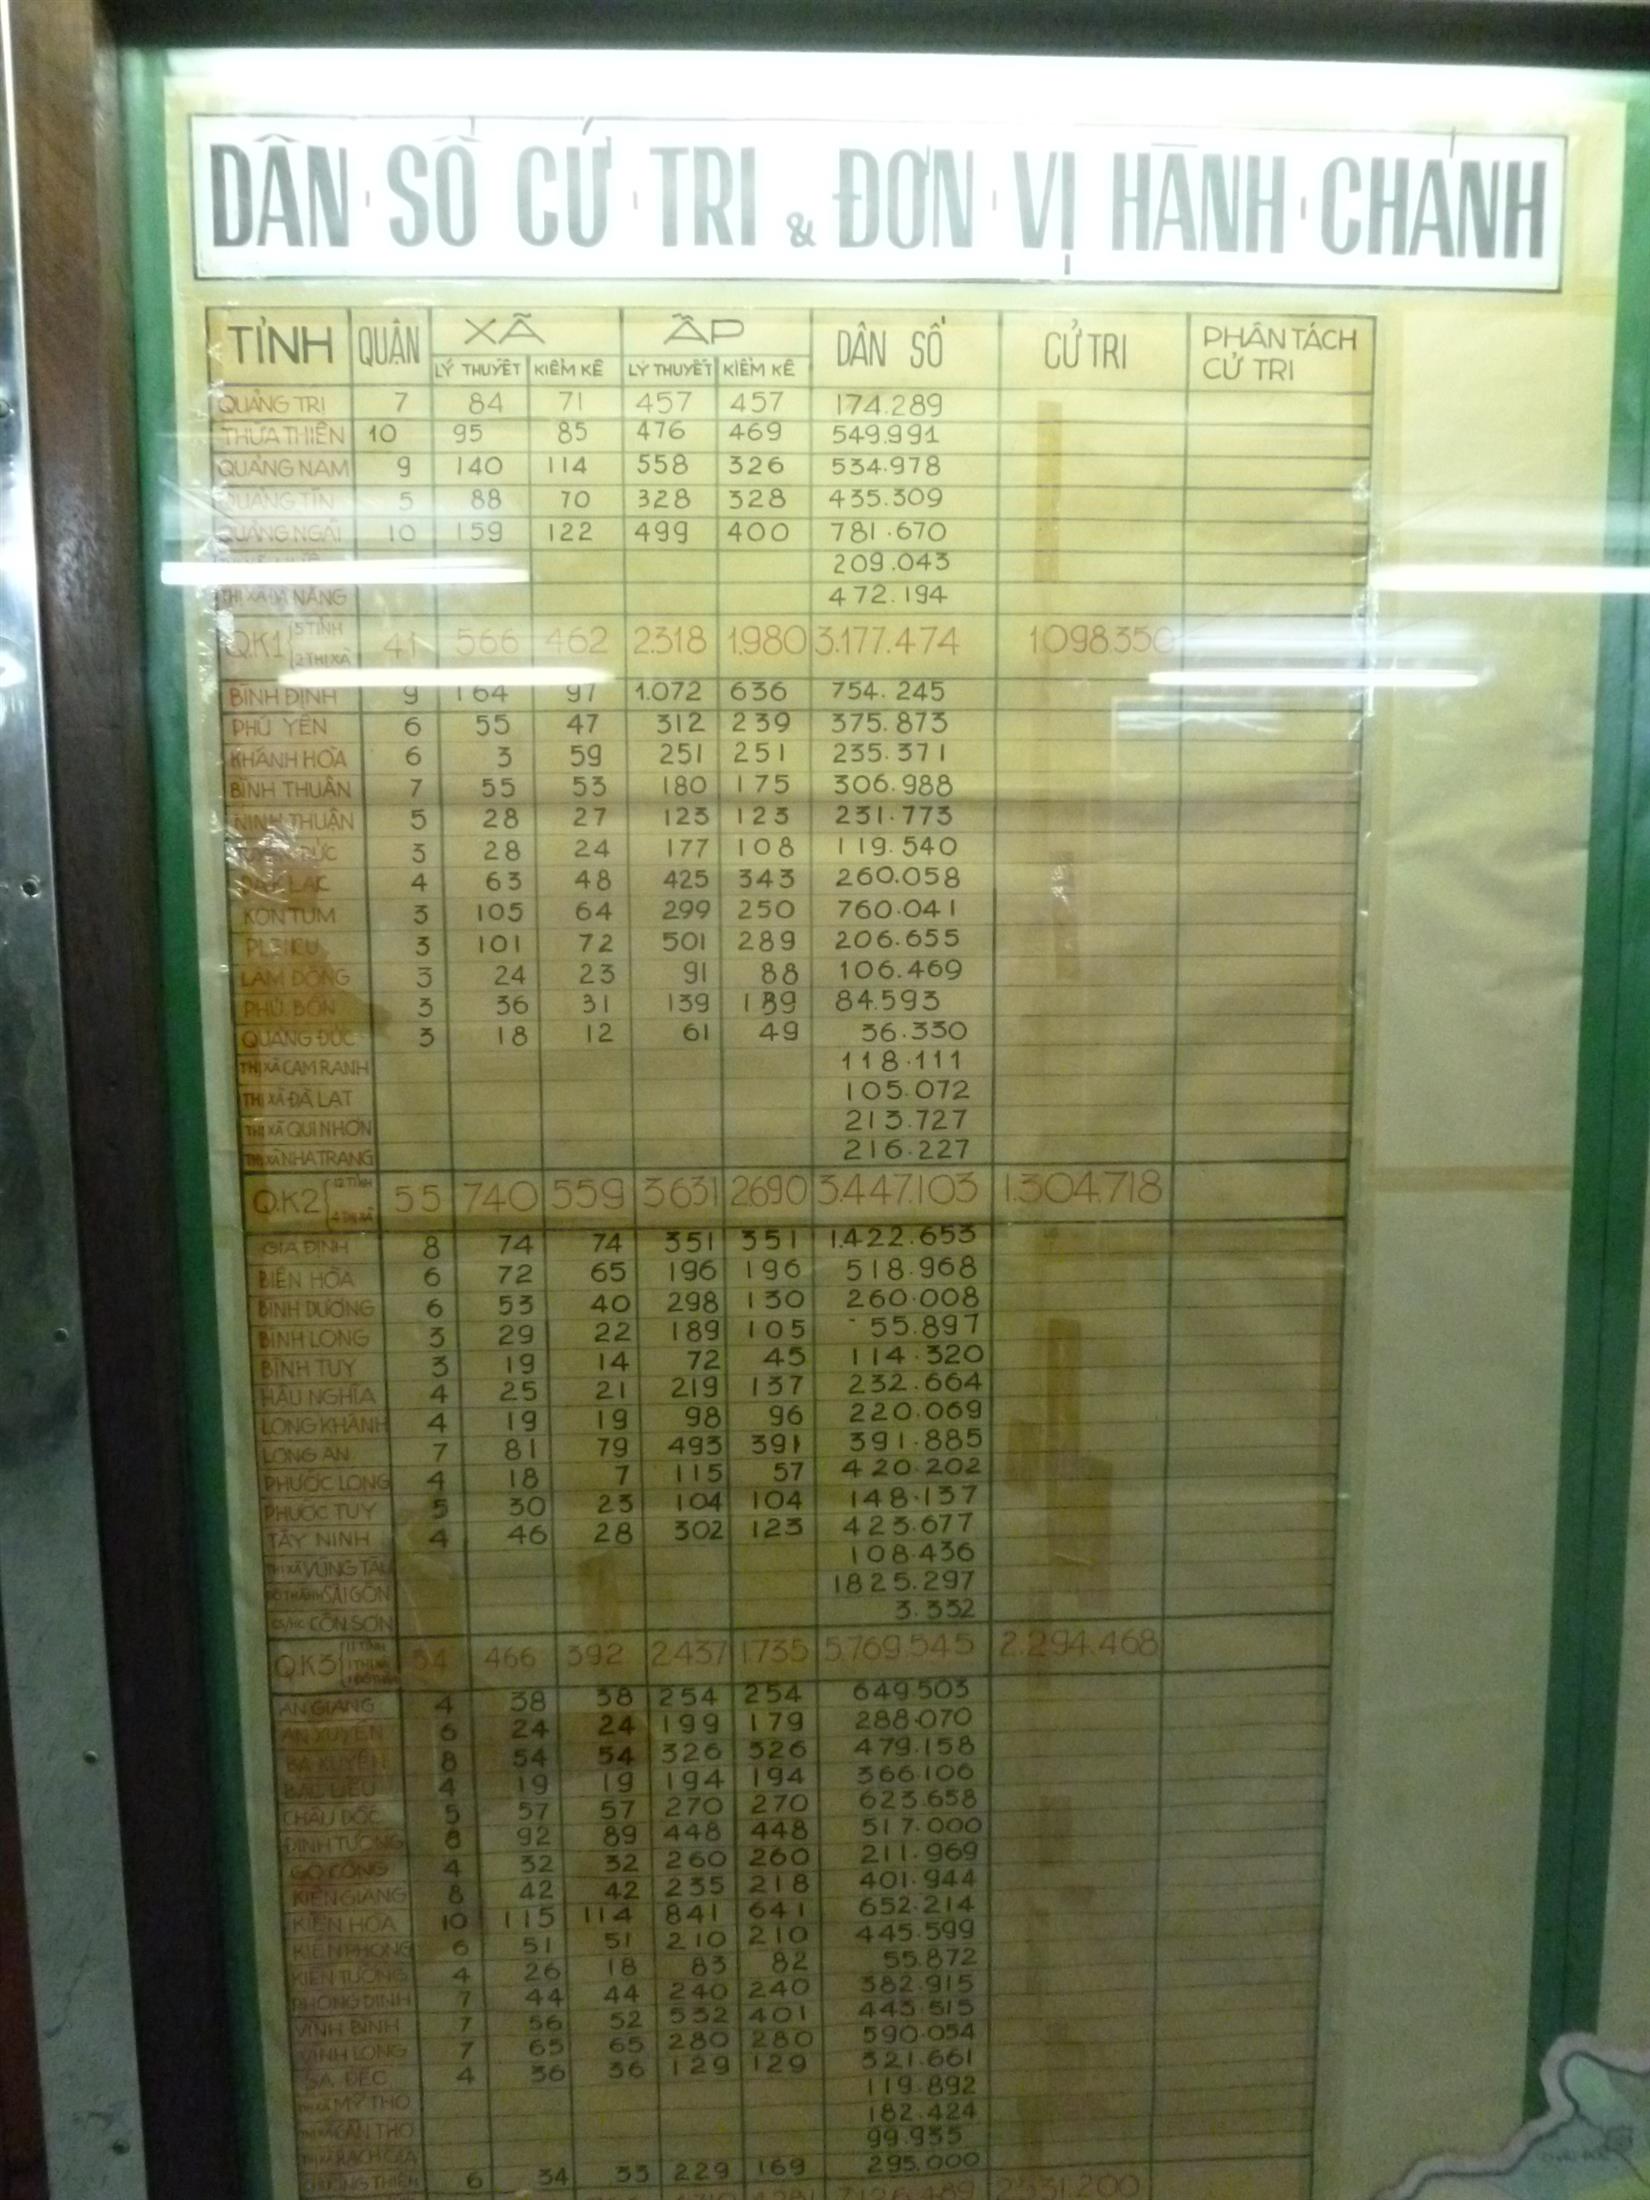 DÂN·SỐ CỬ·TRI & ĐƠN·VỊ HÀNH·CHÁNH
TỈNH QUẬN XÃ ẤP DÂN SỐ CỬ TRI PHÂN TÁCH CỬ TRI
LÝ THUYẾT KIỂM KÊ LÝ THUYẾT KIỂM KÊ
QUẢNG TRỊ 7 84 71 457 457 174.289
THỪA THIÊN 10 95 85 476 469 549.991
QUẢNG NAM 9 140 114 558 326 534.978
QUẢNG TÍN 5 88 70 328 328 435.309
QUẢNG NGÃI 10 159 122 499 400 781.670
209.043
THỊ XÃ ĐÀ NẴNG 472.194
Q.K1 5 TỈNH 2 THỊ XÃ 41 566 462 2.318 1.980 3.177.474 1.098.350
BÌNH ĐỊNH 9 164 97 1.072 636 754.245
PHÚ YÊN 6 55 47 312 239 375.873
KHÁNH HÒA 6 3 59 251 251 235.371
BÌNH THUẬN 7 55 53 180 175 306.988
NINH THUẬN 5 28 27 123 123 231.773
TUYÊN ĐỨC 3 28 24 177 108 119.540
ĐẮC LẮC 4 63 48 425 343 260.058
KONTUM 3 105 64 299 250 760.041
PLEIKU 3 101 72 501 289 206.655
LÂM ĐỒNG 3 24 23 91 88 106.469
PHÚ BỔN 3 36 31 139 139 84.593
QUẢNG ĐỨC 3 18 12 61 49 36.330
THỊ XÃ CAM RANH 118.111
THỊ XÃ ĐÀ LẠT 105.072
THỊ XÃ QUI NHƠN 213.727
THỊ XÃ NHA TRANG 216.227
Q.K2 12 TỈNH 4 THỊ XÃ 55 740 559 3631 2690 3.447.103 1.304.718
GIA ĐỊNH 8 74 74 351 351 1.422.653
BIÊN HÒA 6 72 65 196 196 518.968
BÌNH DƯƠNG 6 53 40 298 130 260.008
BÌNH LONG 3 29 22 189 105 55.897
BÌNH TUY 3 19 14 72 45 114.320
HẬU NGHĨA 4 25 21 219 137 232.664
LONG KHÁNH 4 19 19 98 96 220.069
LONG AN 7 81 79 493 391 391.885
PHƯỚC LONG 4 18 7 115 57 420.202
PHƯỚC TUY 5 30 23 104 104 148.137
TÂY NINH 4 46 28 302 123 423.677
THỊ XÃ VŨNG TÀU 108.436
ĐÔ THÀNH SÀI GÒN 1825.297
CÔN SƠN 3.332
Q.K3 11 TỈNH 1 THỊ XÃ 54 466 392 2.437 1.735 5.769.545 2.294.468
AN GIANG 4 38 38 254 254 649.503
AN XUYÊN 6 24 24 199 179 288.070
BA XUYÊN 8 54 54 326 326 479.158
BẠC LIÊU 4 19 19 194 194 366.106
CHÂU ĐỐC 5 57 57 270 270 623.658
ĐỊNH TƯỜNG 8 92 89 448 448 517.000
GÒ CÔNG 4 32 32 260 260 211.969
KIÊN GIANG 8 42 42 235 218 401.944
KIẾN HÒA 10 115 114 841 641 652.214
KIẾN PHONG 6 51 51 210 210 445.599
KIẾN TƯỜNG 4 26 18 83 82 55.872
PHONG DINH 7 44 44 240 240 382.915
VĨNH BÌNH 7 56 52 532 401 443.515
VĨNH LONG 7 65 65 280 280 590.054
SA ĐÉC 4 36 36 129 129 321.661
MỸ THO 119.892
CẦN THƠ 182.424
RẠCH GIÁ 99.935
CHƯƠNG THIỆN 6 34 33 229 169 295.000